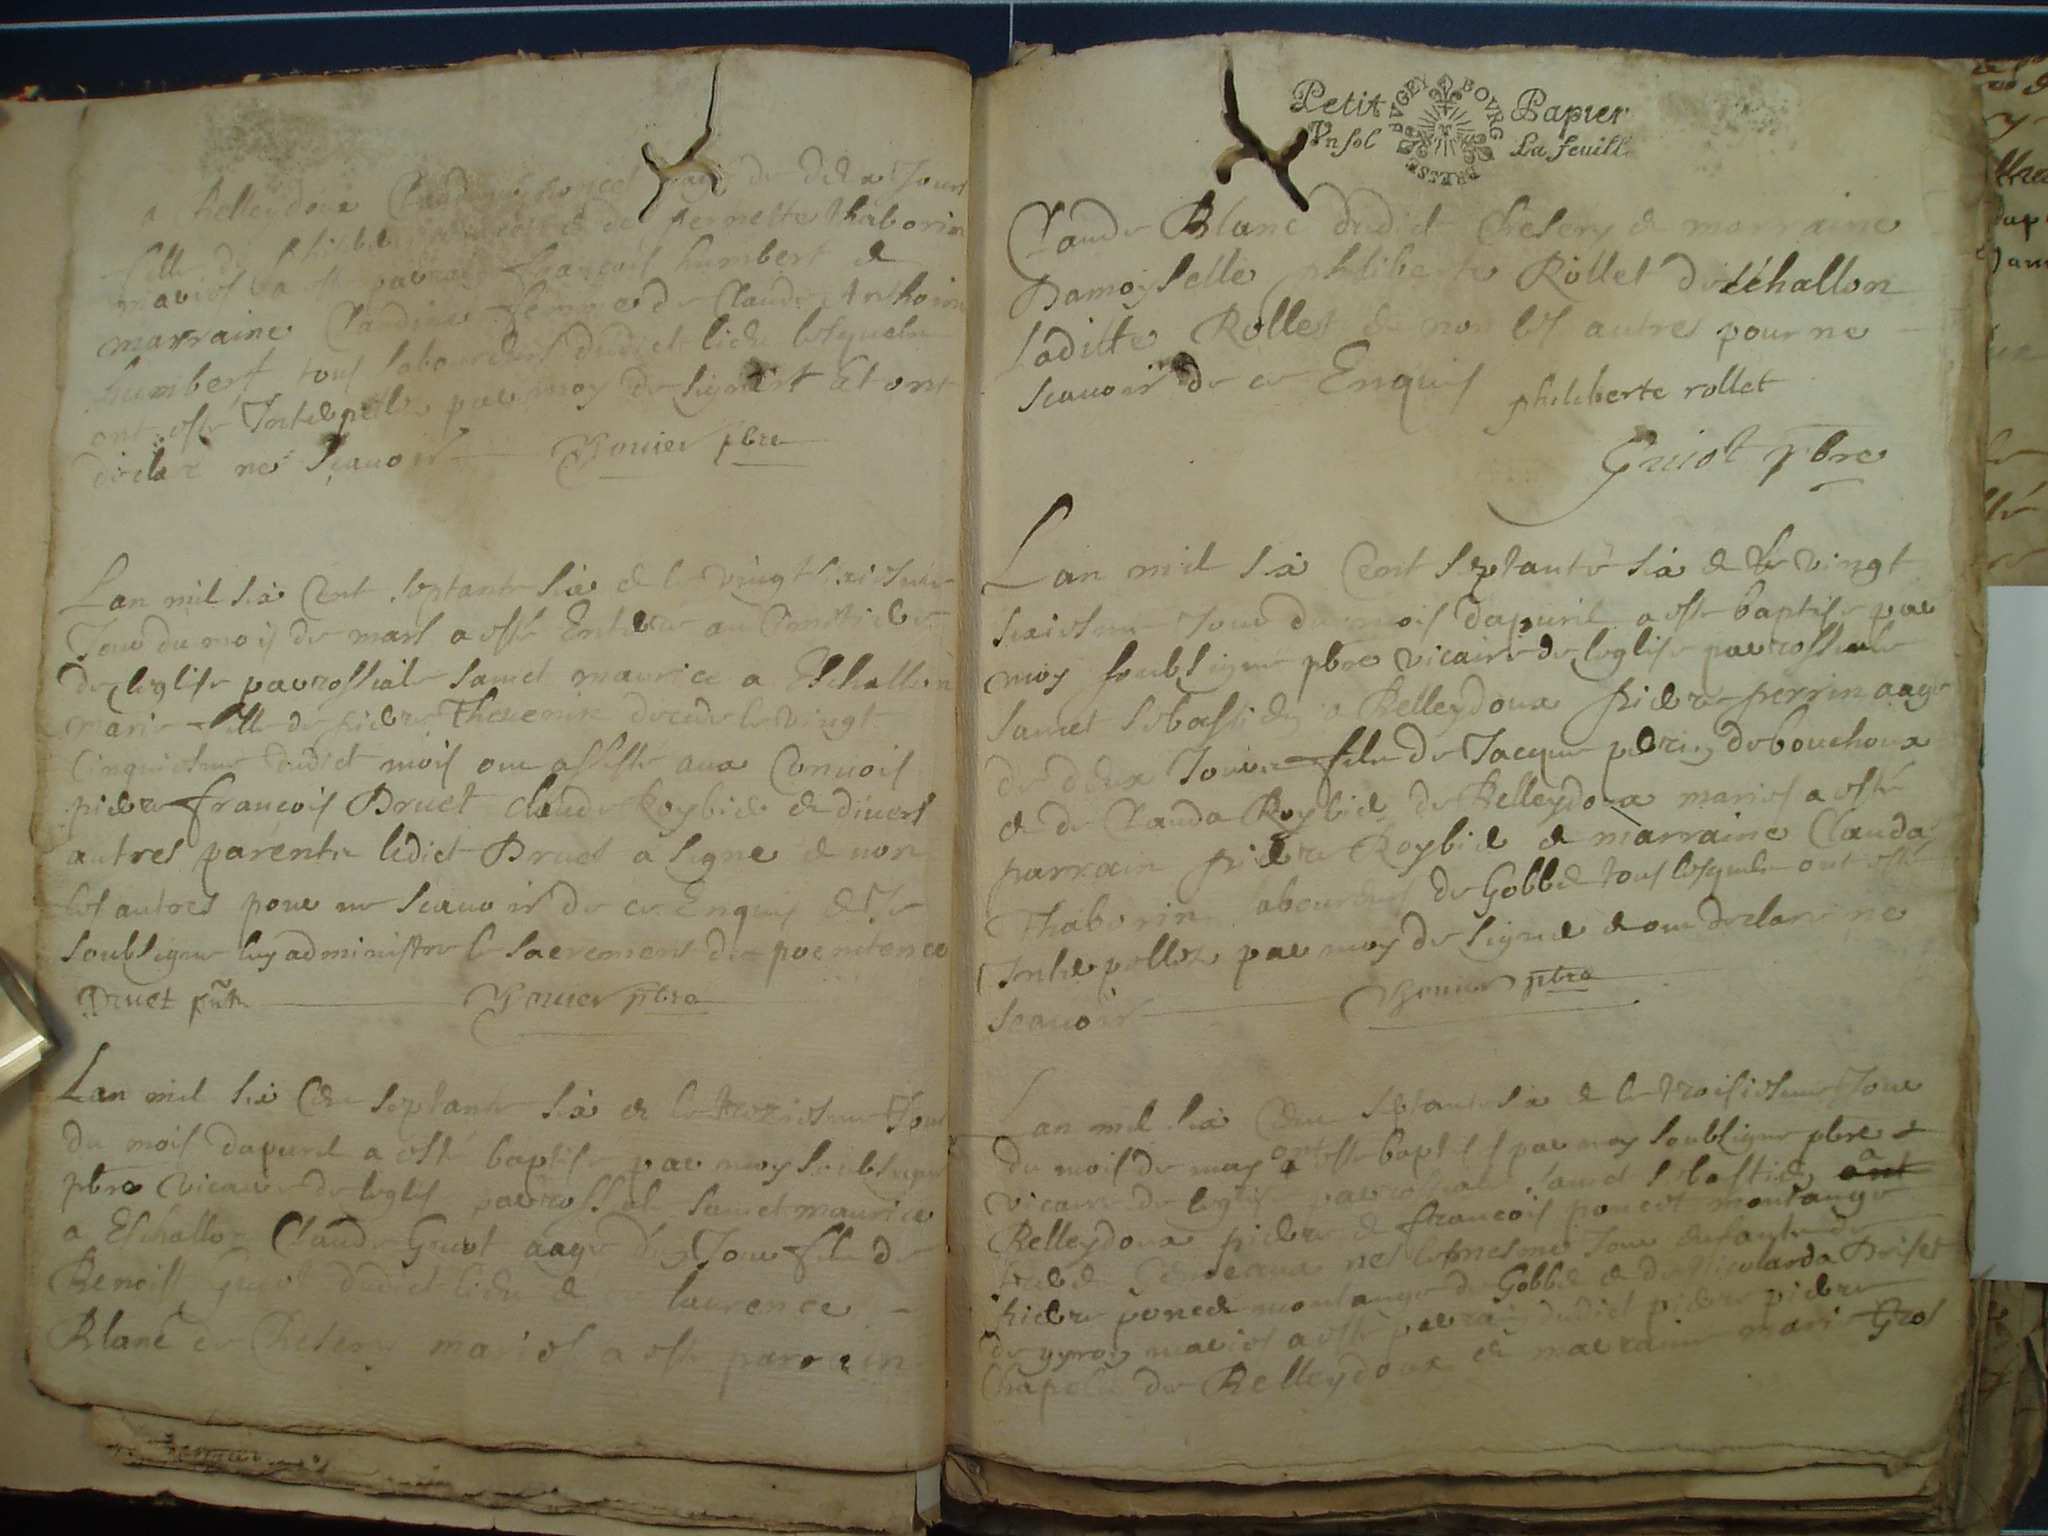 a Belleydoux Claudine poncet aagée de deux Jours
fille de philibe et de pernette thaborin
mariés a esté parrain françois humbert et
marraine Claudine femme de Claude Anthoine
humbert tous laboureurs dudict lieu lesquels
ont esté Interpellez par moy de signer et ont
declaré ne scauoir Bouuier pbre
Lan mil six Cent septante six et le vingt sixiesme
Jour du mois de mars a esté Enterré au Cimetiere
de leglise parrossiale sainct maurice a Eschallon
marie fille de pierre Theuenin decedé le vingt
Cinquiesme dudict mois ont assisté aux Conuois
pierre françois Druet claude Roybier et diuers
autres parents ledict Druet a signé et non
les autres pour ne scauoir de ce Enquis et Je
soubsigné luy administre le sacrement de poenitence
Druet pñt Bouuier pbre
Lan mil six Cent septante six et le trezeiesme Jour
du mois dapuril a esté baptisé par moy soubsigné
pbre vicaire de leglise parrossiale sainct maurice
a Eschallon Claude Guiot aagé dung Jour fils de
Benoist Guiot dudict lieu et laurence
Blanc de Chesery mariés a esté parrain
Petit Papier
Vn sol La feuill
BOVRG BRESSE BVGEY
Claude Blanc dudict Chesery et marraine
Damoyselle philiberte Rollet dudict échallon
Laditte Rollet et non les autres pour ne
scauoir de ce Enquis philiberte rollet
Guiot pbre
Lan mil six Cent septante six et le vingt
sixiesme Jour du mois dapuril a esté baptisé par
moy soubsigné pbre vicaire de leglise parrossiale
sainct sebastien a Belleydoux pierre perrin aagé
de deux Jours fils de Jacques perrin de bouchoux
et de Clauda Roybier de Belleydoux mariés a esté
parrain pierre Roybier et marraine Clauda
Thaborin laboureurs de Gobbet tous lesquels ont esté
Interpellez par moy de signer et ont declaré ne
scauoir Bouuier pbre
Lan mil six Cent septante six et le troisiesme Jour
du mois de may ont esté baptisés par moy soubsigné pbre
vicaire de leglise parrossiale sainct sebastien ont a
Belleydoux pierre et françois poncet montange
frere Gemeaux nes le mesme Jour enfants de
pierre poncet montange de Gobbet et de Nicolarda Brifet
de gyron mariés a esté parrain dudict pierre pierre
Chapelu de Belleydoux et marraine mari Gros